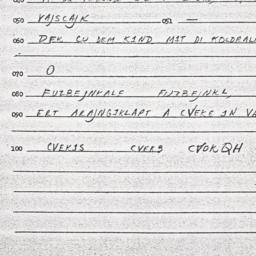 050 VAJSCAJK 051 —
060 DEK CU DEM KIND MIT DI KOLDRAL
070 O
080 FUZBEJNKALE FUZBEJNKL
090 ERT ARAJNGIKLAPT A CVEKE IN
100 CVEKIS CVEKS CVOKQH